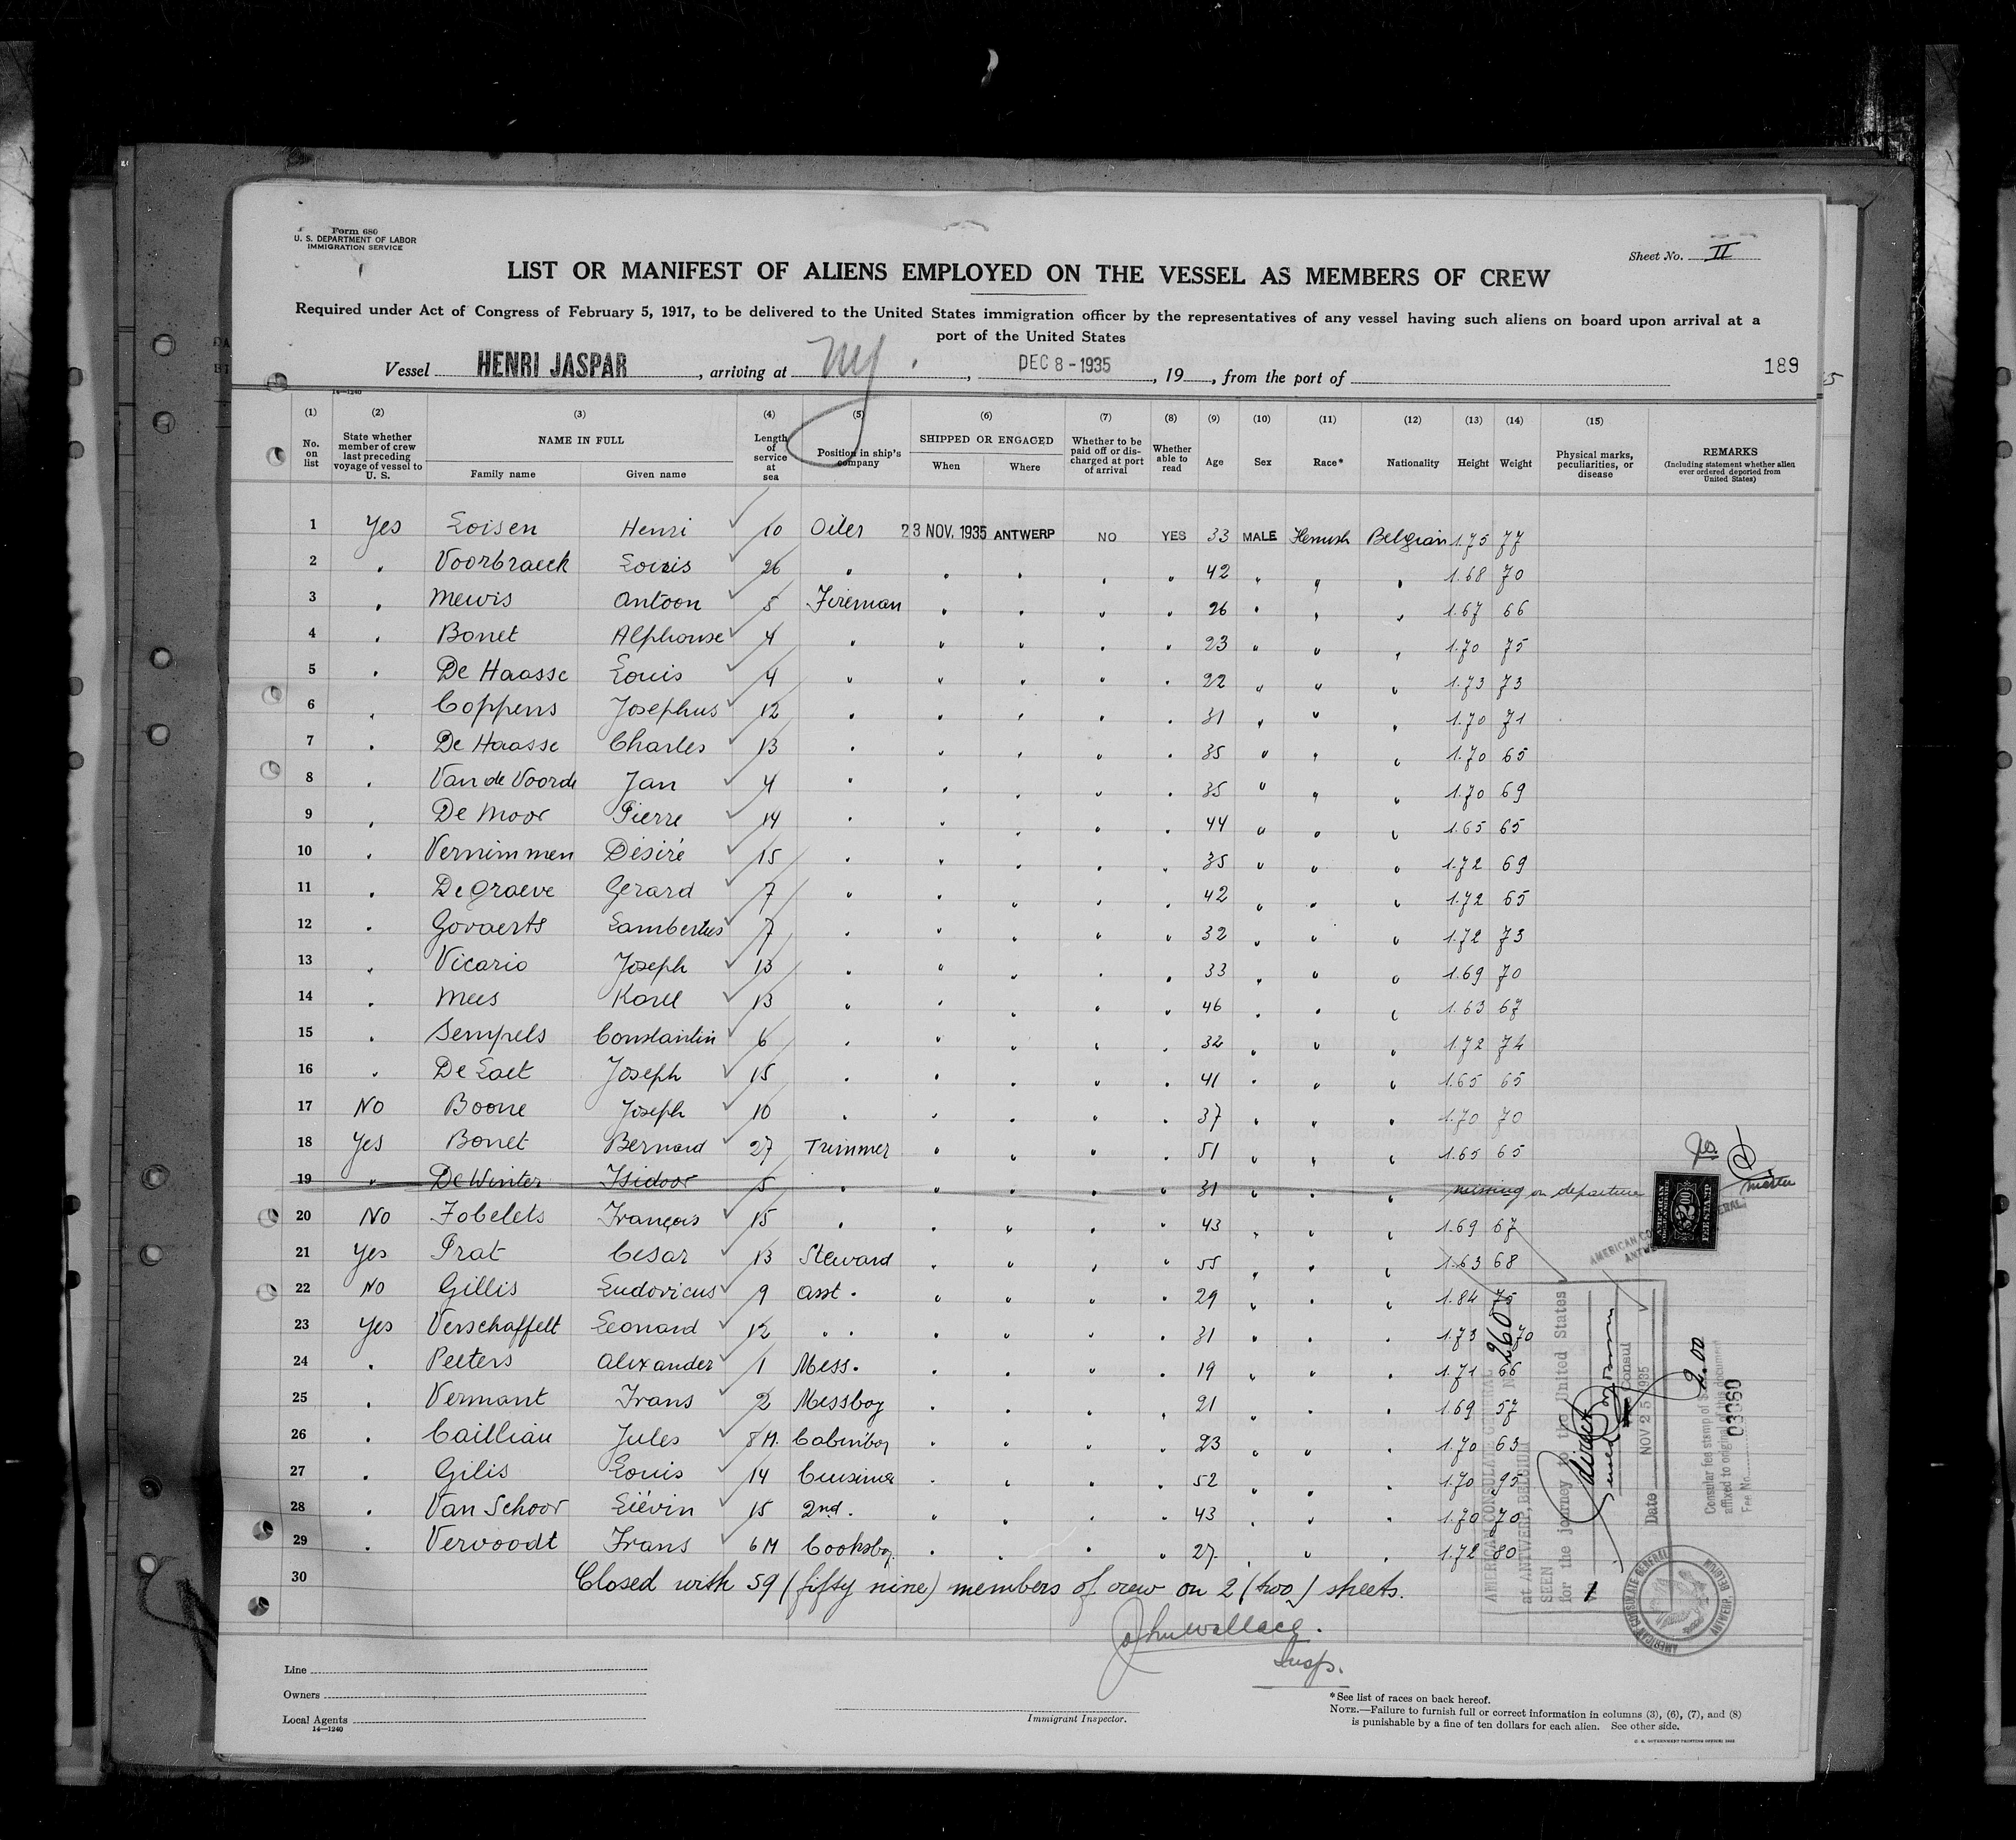 Form 680
U. S. DEPARTMENT OF LABOR
IMMIGRATION SERVICE
Sheet No. II
LIST OR MANIFEST OF ALIENS EMPLOYED ON THE VESSEL AS MEMBERS OF CREW
Required under Act of Congress of February 5, 1917, to be delivered to the United States immigration officer by the representatives of any vessel having such aliens on board upon arrival at a
port of the United States
Vessel HENRI JASPAR, arriving at NY., DEC 8 - 1935, 19, from the port of
189
14—1240
(1) (2) (3) (4) (5) (6) (7) (8) (9) (10) (11) (12) (13) (14) (15)
No. on list State whether member of crew last preceding voyage of vessel to U. S. NAME IN FULL Family name Given name Length of service at sea Position in ship's company SHIPPED OR ENGAGED When Where Whether to be paid off or discharged at port of arrival Whether able to read Age Sex Race* Nationality Height Weight Physical marks, peculiarities, or disease REMARKS (Including statement whether alien ever ordered deported from United States)
1 Yes Loisen Henri 10 Oiler 23 NOV. 1935 ANTWERP NO YES 33 MALE Flemish Belgian 1.75 77
2 " Voorbraeck Louis 26 " " " " " 42 " " " 1.68 70
3 " Mewis Antoon 5 Fireman " " " " 26 " " " 1.67 66
4 " Bonet Alphonse 4 " " " " " 23 " " " 1.70 75
5 " De Haasse Louis 4 " " " " " 22 " " " 1.73 73
6 " Coppens Josephus 12 " " " " " 31 " " " 1.70 71
7 " De Haasse Charles 13 " " " " " 35 " " " 1.70 65
8 " Van de Voorde Jan 4 " " " " " 35 " " " 1.70 69
9 " De Moor Pierre 14 " " " " " 44 " " " 1.65 65
10 " Vernimmen Désiré 15 " " " " " 35 " " " 1.72 69
11 " De Graeve Gerard 7 " " " " " 42 " " " 1.72 65
12 " Govaerts Lambertus 7 " " " " " 32 " " " 1.72 73
13 " Vicario Joseph 13 " " " " " 33 " " " 1.69 70
14 " Mees Karel 13 " " " " " 46 " " " 1.63 67
15 " Sempels Constantin 6 " " " " " 32 " " " 1.72 74
16 " De Laet Joseph 15 " " " " " 41 " " " 1.65 65
17 NO Boone Joseph 10 " " " " " 37 " " " 1.70 70
18 Yes Bonet Bernard 27 Trimmer " " " " 51 " " " 1.65 65
19 " De Winter Isidoor 5 " " " " " 31 " " " missing on departure
20 No Fobelets François 15 " " " " " 43 " " " 1.69 67
21 Yes Prat Cesar 13 Steward " " " " 55 " " " 1.63 68
22 NO Gillis Ludovicus 9 Asst. " " " " 29 " " " 1.84 75
23 Yes Verschaffelt Leonard 12 " " " " " " 31 " " " 1.73 70
24 " Peeters Alexander 1 Mess. " " " " 19 " " " 1.71 66
25 " Vermant Frans 2 Messboy " " " " 21 " " " 1.69 57
26 " Cailliau Jules 8 M. Cabinboy " " " " 23 " " " 1.70 63
27 " Gilis Louis 14 " " " " 52 " " " 1.70 95
28 " Van Schoor Liévin 15 2nd. " " " " 43 " " " 1.70 70
29 " Vervoodt Frans 6 M Cooksboy. " " " " 27 " " " 1.72 80
30 Closed with 59 (fifty nine) members of crew on 2 (two) sheets.
John Wallace.
Insp.
AMERICAN CONSULATE GENERAL
at ANTWERP, BELGIUM
No 260
SEEN
for the journey to the United States
Consul
Date NOV 25 1935
Consular fee stamp of $ 2.00
affixed to original of this document
Fee No. 03360
AMERICAN
$2.00
FEE STAMP
AMERICAN CONSULATE GENERAL
ANTWERP, BELGIUM
Line
Owners
Local Agents
14—1240
Immigrant Inspector.
*See list of races on back hereof.
NOTE.—Failure to furnish full or correct information in columns (3), (6), (7), and (8)
is punishable by a fine of ten dollars for each alien. See other side.